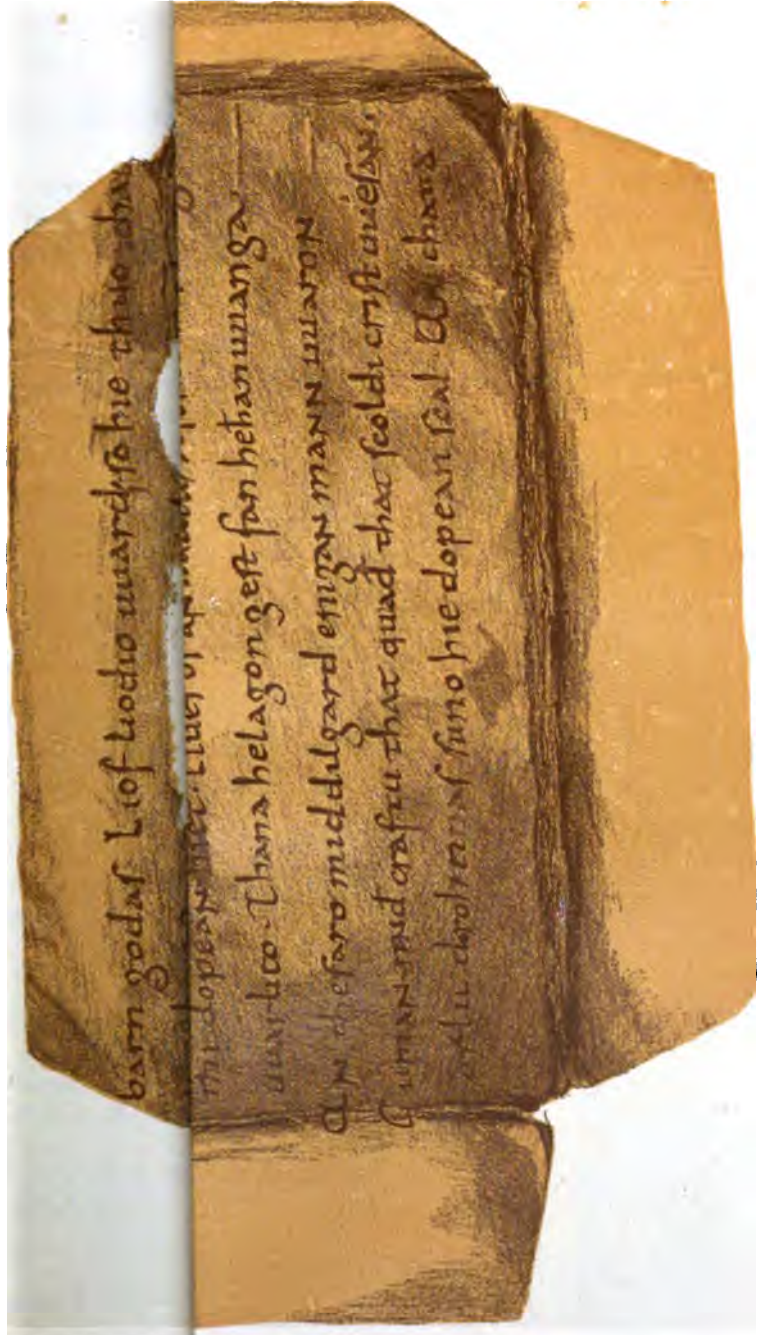 barn godaſ Liof liodio uuard ſo hie thuo tha
mi dopean
uuarlico · Thana helagon geſt fan hebanuuanga
An theſaro middilgard enigan mann uuaron
Cuman mid craftu that quad that ſcoldi criſt uueſan.
drohtinaſ ſuno hie dopean ſcal An thana